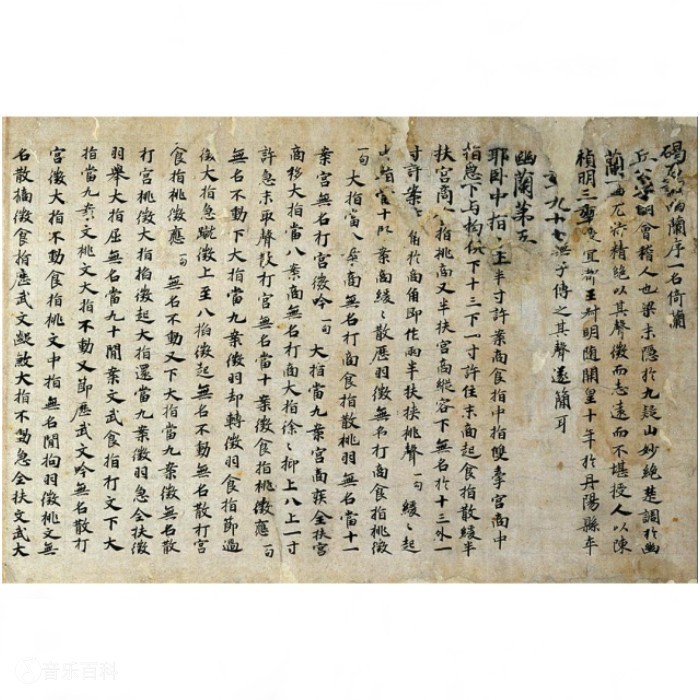 碣石調幽蘭序一名倚蘭
丘公字明會稽人也梁末隱於九疑山妙絕楚調於幽
蘭一曲尤特精絕以其聲微而志遠而不堪授人以陳
禎明三年授宜都王叔明隨開皇十年於丹陽縣卒
年九十七無子傳之其聲遂簡耳
幽蘭第五
耶臥中指十上半寸許案商食指中指雙牽宮商中
指急下与拘俱下十三下一寸許住末商起食指散緩半
扶宮商食指挑商又半扶宮商縱容下無名於十三外一
寸許案商角於商角即作兩半扶挾挑聲一句緩ゝ起
指當十案商緩ゝ散歷羽徵無名打商食指挑徵
一句大指當八案商無名打商食指散挑羽無名當十一
案宮無名打宮徵吟一句大指當九案宮商疾全扶宮
商移大指當八案商無名打商大指徐ゝ抑上八上一寸
許急末取聲散打宮無名當十案徵食指挑徵應一句
無名不動下大指當九案徵羽却轉徵羽食指節過
徵大指急蹴徵上至八拍徵起無名不動無名散打宮
食指挑徵應一句無名不動又下大指當九案徵無名散
打宮挑徵大指拍徵起大指還當九案徵羽急全扶徵
羽舉大指屈無名當九十間案文武食指打文下大
指當九案文挑文大指不動又節歷武文吟無名散打
宮徵大指不動食指挑文中指無名間拘羽徵挑文無
名散摘徵食指歷武文大指不動急全扶文武大
音乐百科